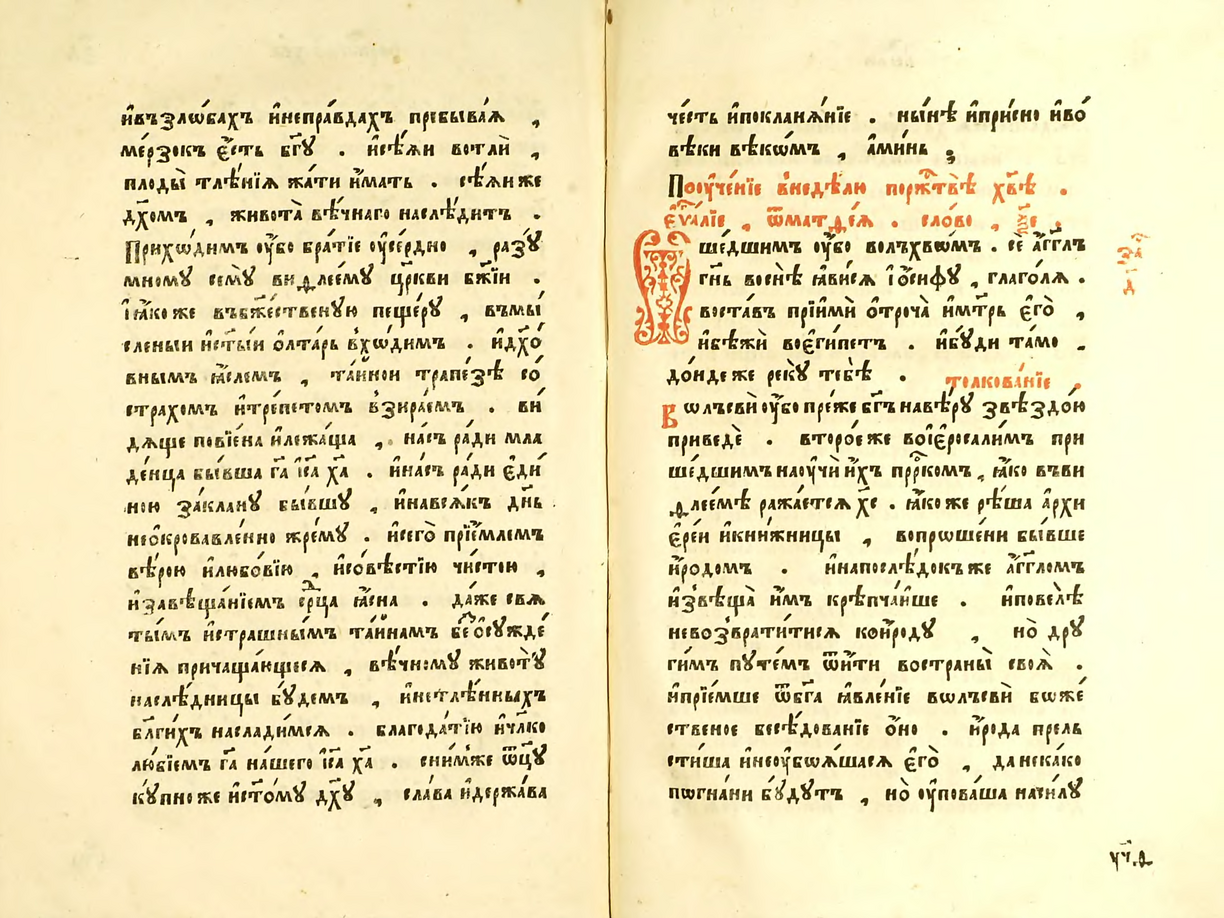 и҆въз̾ло́бахъ и҆непра́вдахъ пребыва́ѧ ,
ме́рзокъ є҆́сть бг҃ꙋ . и҆сѣ́ѧи вотлѝ ,
плоды̀ тлѣ́нїѧ жа́ти и҆́мать . сѣ́ѧиже
дх҃омъ , живота̀ вѣ́чнаго наслѣ́дитъ .
Прихѡ́димъ ᲂу҆́бо бра́тїе ᲂу҆се́рдно , разꙋ́
мномꙋ семꙋ̀ виѳлее́мꙋ цр҃кви бж҃їи .
І҆ꙗ҆́коже въбж҃е́ственꙋю пеще́рꙋ , въмы́
сленыи и҆ст҃ы́и ѻ҆лта́рь вхѡ́димъ . и҆дх҃о́
внымъ ꙗ҆́слемъ , та́инои трапе́зѣ со́
страхомъ и҆тре́петомъ взира́емъ . ви́
дѧще пові́ена и҆лежа́ща , на́съ ра́ди мла
де́нца бы́вша гⷭ҇а і҆с҃а хⷭ҇а . и҆на́съ ра́ди є҆ди́
ною за́кланꙋ бы́вшꙋ , и҆навсѧ́къ дн҃ь
неѻ҆крова́вленно жре́мꙋ . и҆сего̀ прїе́млемъ
вѣ́рою и҆любо́вїю , и҆со́вѣстїю чи́стою ,
и҆завѣща́нїемъ се́рⷣца ꙗ҆́сна . да́же свѧ
ты́мъ и҆стра́шнымъ та́инамъ беⷥѡсꙋжде́
нїѧ причаща́ющесѧ , вѣ́чномꙋ животꙋ̀
наслѣ́дницы бꙋ́демъ , и҆нетлѣ́нныхъ
бл҃ги́хъ наслади́мсѧ . благода́тїю и҆чл҃ко
лю́бїемъ гⷭ҇а на́шего і҆с҃а хⷭ҇а . сни́мже ѿц҃ꙋ̀
кꙋ́пноже и҆ст҃о́мꙋ дх҃ꙋ , сла́ва и҆держа́ва
че́сть и҆поклана́нїе . ны́нѣ и҆при́сно и҆во́
вѣки вѣкѡ́мъ , а҆ми́нь .
Поᲂуче́нїе внедѣ́лю поржⷭ҇твѣ̀ хв҃ѣ .
є҆ѵⷢ҇алїе , ѿматѳе́ѧ . сло́во ,
Ѿше́дшимъ ᲂу҆́бо волъхвѡ́мъ . сѐ а҆́гг҃лъ
гн҃ь воснѐ ꙗ҆ви́сѧ і҆ѡ́сифꙋ , глаго́лѧ .
воста́въ прїимѝ ѻ҆троча̀ и҆мт҃рь є҆го̀ ,
и҆бѣжѝ воє҆ги́петъ . и҆бꙋ́ди та́мо .
до́ндеже рекꙋ̀ тебѣ̀ . толкова́нїе ,
Вѡлъсвѝ ᲂу҆́бо пре́же бг҃ъ навѣ́рꙋ звѣздо́ю
приведѐ . второ́еже воі҆є҆росали́мъ при
ше́дшимъ наᲂучѝ и҆́хъ прⷪ҇ркомъ , ꙗ҆́ко въви
ѳлее́мѣ ража́етсѧ хⷭ҇е . ꙗ҆́коже рѣ́ша а҆рхи
є҆ре́и и҆кни́жницы , вопрѡше́ни бы́вше
и҆́родомъ . и҆напослѣ́докъже а҆́гг҃ломъ
и҆звѣща̀ и҆̀мъ крѣпча́ише . и҆повелѣ̀
невозврати́тисѧ ко́и҆родꙋ , но̀ дрꙋ
ги́мъ пꙋте́мъ ѿитѝ востраны̀ своѧ̀ .
и҆прїе́мше ѿбг҃а ꙗ҆вле́нїе вѡлъсвѝ бѡже́
ственое бесѣ́дованїе ѻ҆́но . и҆́рода прель
сти́ша и҆неᲂу҆боѧ́шасѧ є҆го̀ , данека́ко
пѡгна́ни бꙋ́дꙋтъ , но̀ ᲂу҆пова́ша наси́лꙋ